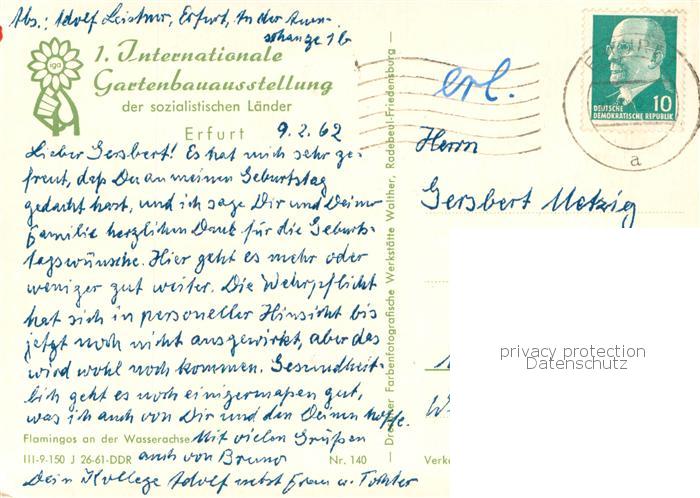 Abs.: Adolf Leistner, Erfurt, In der Aum-
schanze 1b
iga
1. Internationale
Gartenbauausstellung
der sozialistischen Länder
Erfurt
9. 2. 62
Lieber Gersbert! Es hat mich sehr ge-
freut, daß Du an meinen Geburtstag
gedacht hast, und ich sage Dir und Deiner
Familie herzlichen Dank für die Geburts-
tagswünsche. Hier geht es mehr oder
weniger gut weiter. Die Wehrpflicht
hat sich in personeller Hinsicht bis
jetzt noch nicht ausgewirkt, aber das
wird wohl noch kommen. Gesundheit-
lich geht es noch einigermaßen gut,
was ich auch von Dir und den Deinen hoffe.
Mit vielen Grüßen
auch von Bruno
Dein Kollege Adolf nebst Frau u. Tochter
Flamingos an der Wasserachse
III-9-150 J 26-61-DDR
Nr. 140
Verk
Dresdner Farbenfotografische Werkstätte Walther, Radebeul-Friedensburg
erl.
DEUTSCHE
DEMOKRATISCHE REPUBLIK
10
a
Herrn
Gersbert Metzig
W
privacy protection
Datenschutz